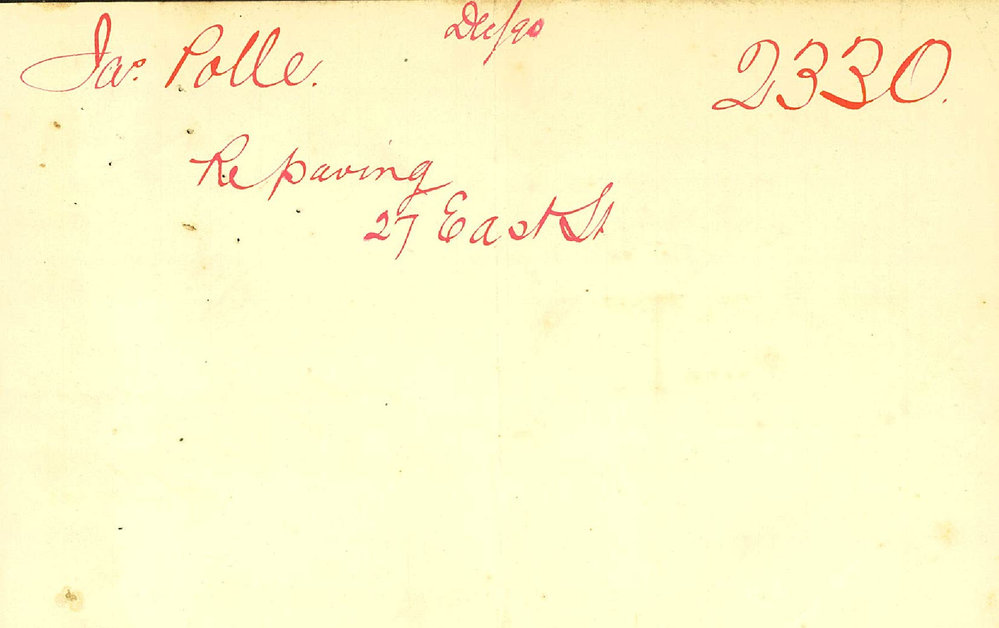 Dec/90
Jas. Polle. 2330.
Repaving
27 East St